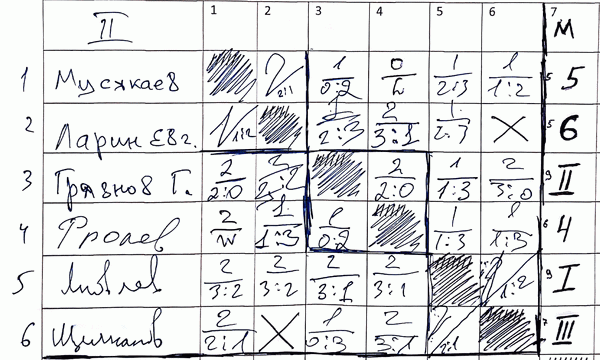 II 1 2 3 4 5 6 7 М
1 Мусякаев 2 2:1 1 0:2 0 L 1 2:3 1 1:2 5 5
2 Ларин Евг. 1 1:2 1 2:3 2 3:1 1 2:3 X 5 6
3 Грязнов Г. 2 2:0 2 3:2 2 2:0 1 1:3 2 3:0 9 II
4 Фролев 2 W 1 1:3 1 0:2 1 1:3 1 1:3 6 4
5 Яковлев 2 3:2 2 3:2 2 3:1 2 3:1 1:2 9 I
6 2 2:1 X 1 0:3 2 3:1 2:1 7 III